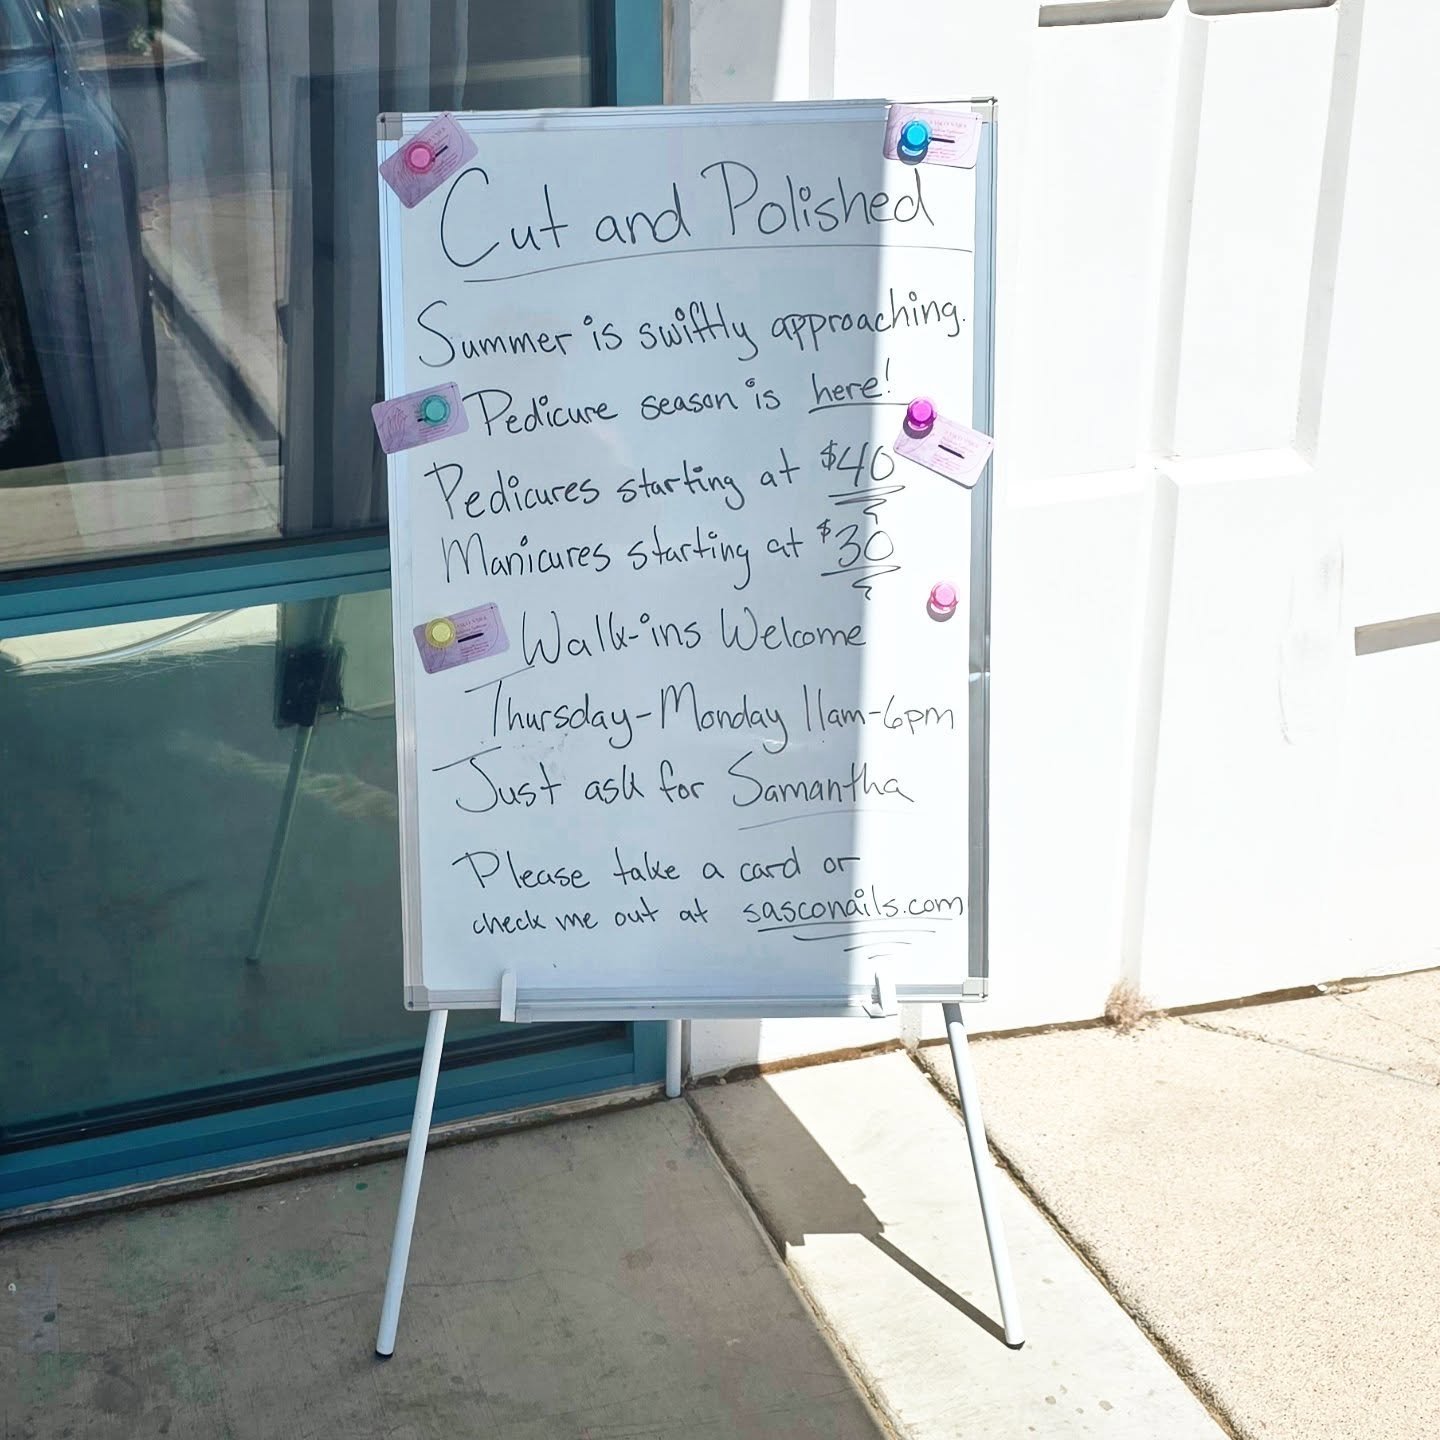 Cut and Polished
Summer is swiftly approaching.
Pedicure season is here!
Pedicures starting at $40
Manicures starting at $30
Walk-ins Welcome
Thursday-Monday 11am-6pm
Just ask for Samantha
Please take a card or
check me out at sasconails.com